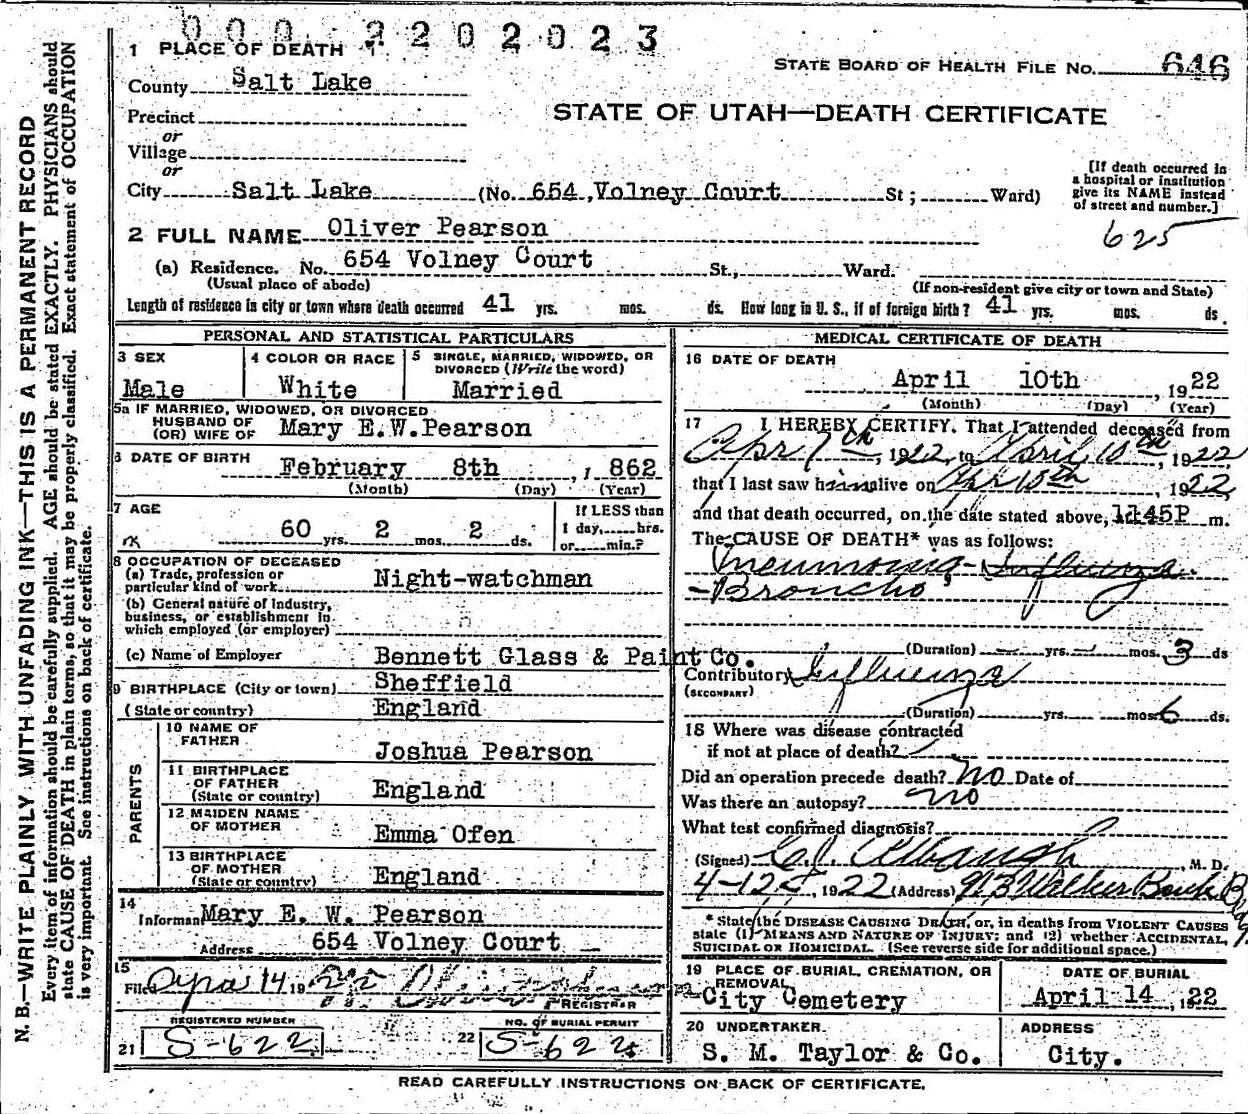 000 2202023
1 PLACE OF DEATH
STATE BOARD OF HEALTH FILE No. 646
County Salt Lake
STATE OF UTAH—DEATH CERTIFICATE
Precinct
or
Village
or
City Salt Lake (No. 654 Volney Court St; Ward)
[If death occurred in
a hospital or institution
give its NAME instead
of street and number.]
2 FULL NAME Oliver Pearson
625
(a) Residence. No. 654 Volney Court St., Ward.
(Usual place of abode) (If non-resident give city or town and State)
Length of residence in city or town where death occurred 41 yrs. mos. ds. How long in U. S., if of foreign birth? 41 yrs. mos. ds.
PERSONAL AND STATISTICAL PARTICULARS
3 SEX
Male
4 COLOR OR RACE
White
5 SINGLE, MARRIED, WIDOWED, OR
DIVORCED (Write the word)
Married
5a IF MARRIED, WIDOWED, OR DIVORCED
HUSBAND OF
(OR) WIFE OF Mary E.W.Pearson
6 DATE OF BIRTH
February 8th , 1862
(Month) (Day) (Year)
7 AGE
60 yrs. 2 mos. 2 ds.
If LESS than
1 day, hrs.
or min.?
8 OCCUPATION OF DECEASED
(a) Trade, profession or
particular kind of work Night-watchman
(b) General nature of industry,
business, or establishment in
which employed (or employer)
(c) Name of Employer Bennett Glass & Paint Co.
9 BIRTHPLACE (City or town) Sheffield
(State or country) England
PARENTS
10 NAME OF
FATHER Joshua Pearson
11 BIRTHPLACE
OF FATHER
(State or country) England
12 MAIDEN NAME
OF MOTHER Emma Ofen
13 BIRTHPLACE
OF MOTHER
(State or country) England
14
Informan Mary E. W. Pearson
Address 654 Volney Court
15
Filed Apr 14 1922
REGISTRAR
REGISTERED NUMBER
21 S-622
NO. OF BURIAL PERMIT
22 S-622
MEDICAL CERTIFICATE OF DEATH
16 DATE OF DEATH
April 10th , 1922
(Month) (Day) (Year)
17 I HEREBY CERTIFY. That I attended deceased from
Apr 7th, 1922, to April 10th, 1922,
that I last saw him alive on Apr 10th, 1922,
and that death occurred, on the date stated above, 1145P m.
The CAUSE OF DEATH* was as follows:
Pneumonia - Influenza
- Broncho
(Duration) yrs. mos. 3 ds
Contributory Influenza
(SECONDARY)
(Duration) yrs. mos 6 ds.
18 Where was disease contracted
if not at place of death?
Did an operation precede death? No Date of
Was there an autopsy? no
What test confirmed diagnosis?
(Signed) C.J. Albaugh M. D.
4-12, 1922 (Address) 913 Walker Bank Bldg.
* State the DISEASE CAUSING DEATH, or, in deaths from VIOLENT CAUSES
state (1) MEANS AND NATURE OF INJURY; and (2) whether ACCIDENTAL,
SUICIDAL OR HOMICIDAL. (See reverse side for additional space.)
19 PLACE OF BURIAL, CREMATION, OR
REMOVAL
City Cemetery
DATE OF BURIAL
April 14, 1922
20 UNDERTAKER
S. M. Taylor & Co.
ADDRESS
City.
READ CAREFULLY INSTRUCTIONS ON BACK OF CERTIFICATE.
N. B.—WRITE PLAINLY WITH UNFADING INK—THIS IS A PERMANENT RECORD
Every item of information should be carefully supplied. AGE should be stated EXACTLY. PHYSICIANS should
state CAUSE OF DEATH in plain terms, so that it may be properly classified. Exact statement of OCCUPATION
is very important. See instructions on back of certificate.